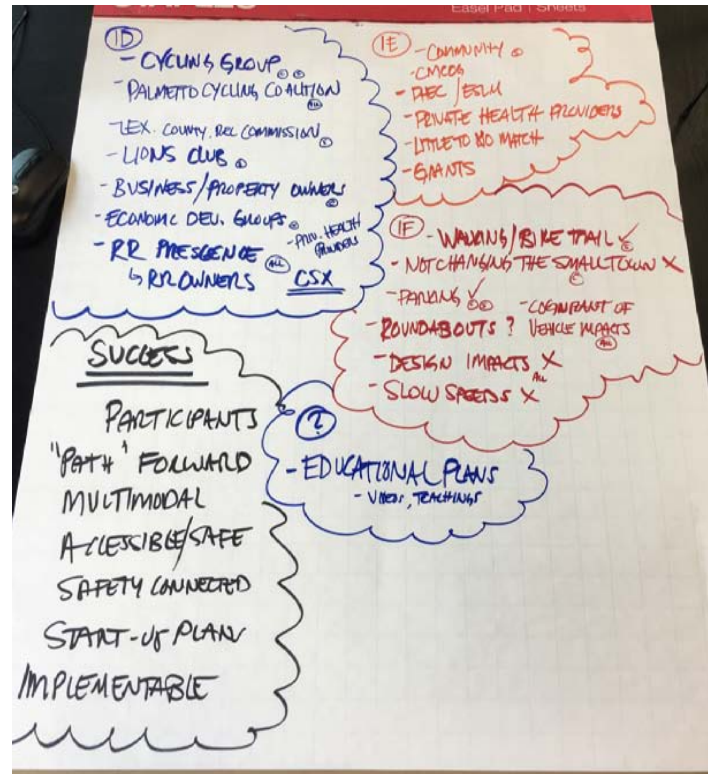 STAPLES
Easel Pad | Sheets
1D
- CYCLING GROUP
- PALMETTO CYCLING COALITION
ALL
- LEX. COUNTY. REC COMMISSION
- LIONS CLUB
- BUSINESS/PROPERTY OWNERS
- ECONOMIC DEV. GROUPS
- PRIV. HEALTH PROVIDERS
- RR PRESCENCE ALL
↳ RR OWNERS CSX
1E
- COMMUNITY
- CMCOG
- DHEC / ESLM
- PRIVATE HEALTH PROVIDERS
- LITTLE TO NO MATCH
- GRANTS
1F
- WALKING/BIKE TRAIL ✓
- NOT CHANGING THE SMALL TOWN X
- PARKING ✓
- COGNIZANT OF VEHICLE IMPACTS
ALL
- ROUNDABOUTS ?
- DESIGN IMPACTS X
ALL
- SLOW SPEEDS X
SUCCESS
PARTICIPANTS
"PATH" FORWARD
MULTIMODAL
ACCESSIBLE/SAFE
SAFETY CONNECTED
START-UP PLAN
IMPLEMENTABLE
?
- EDUCATIONAL PLANS
- VIDEOS, TEACHINGS